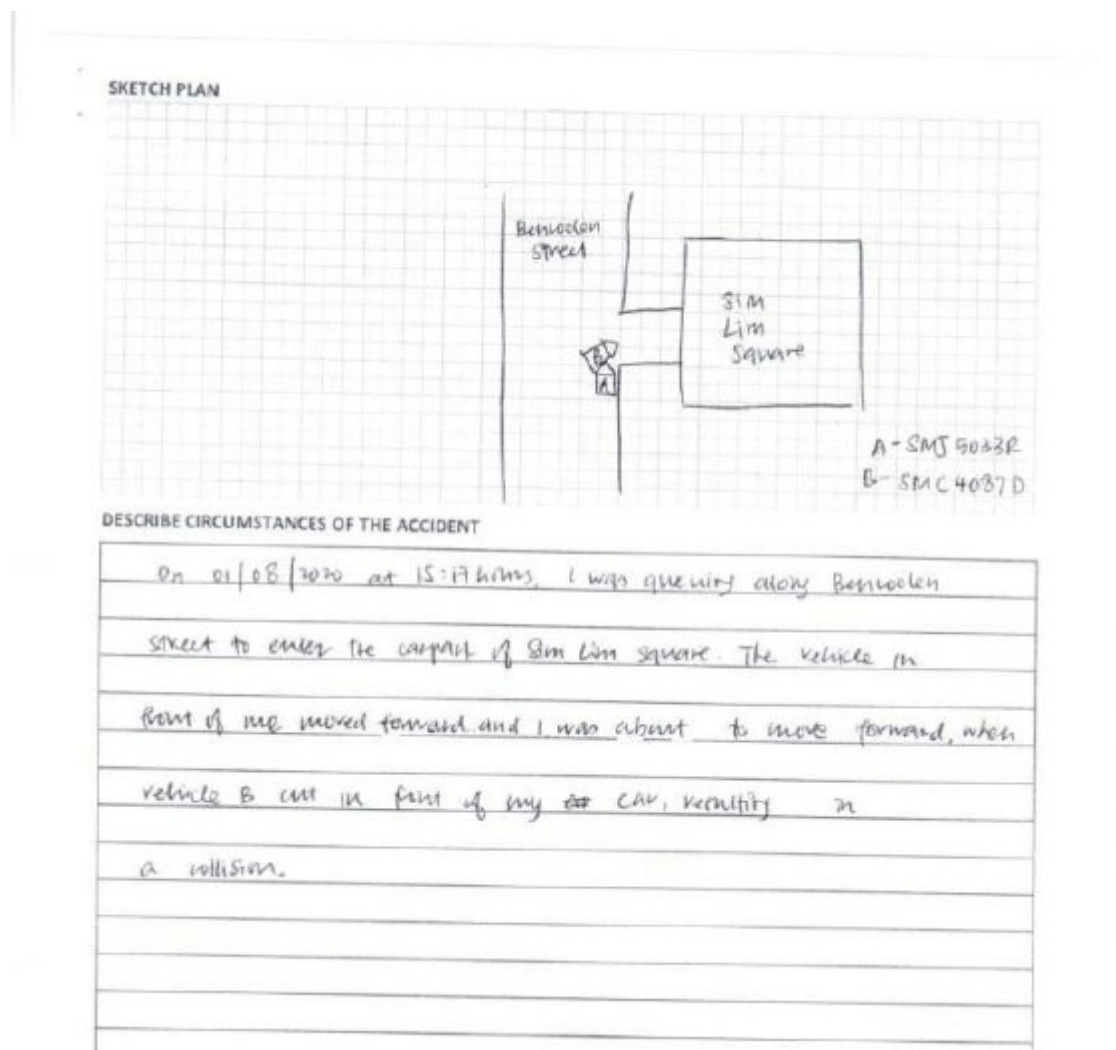 SKETCH PLAN
Bencoolen
Street
Sim
Lim
Square
B
A
A - SMJ 5033R
B - SMC 4087D
DESCRIBE CIRCUMSTANCES OF THE ACCIDENT
On 01/08/2020 at 15:17 hours, I was queuing along Bencoolen
street to enter the carpark of Sim Lim square. The vehicle in
front of me moved forward and I was about to move forward, when
vehicle B cut in front of my car, resulting in
a collision.